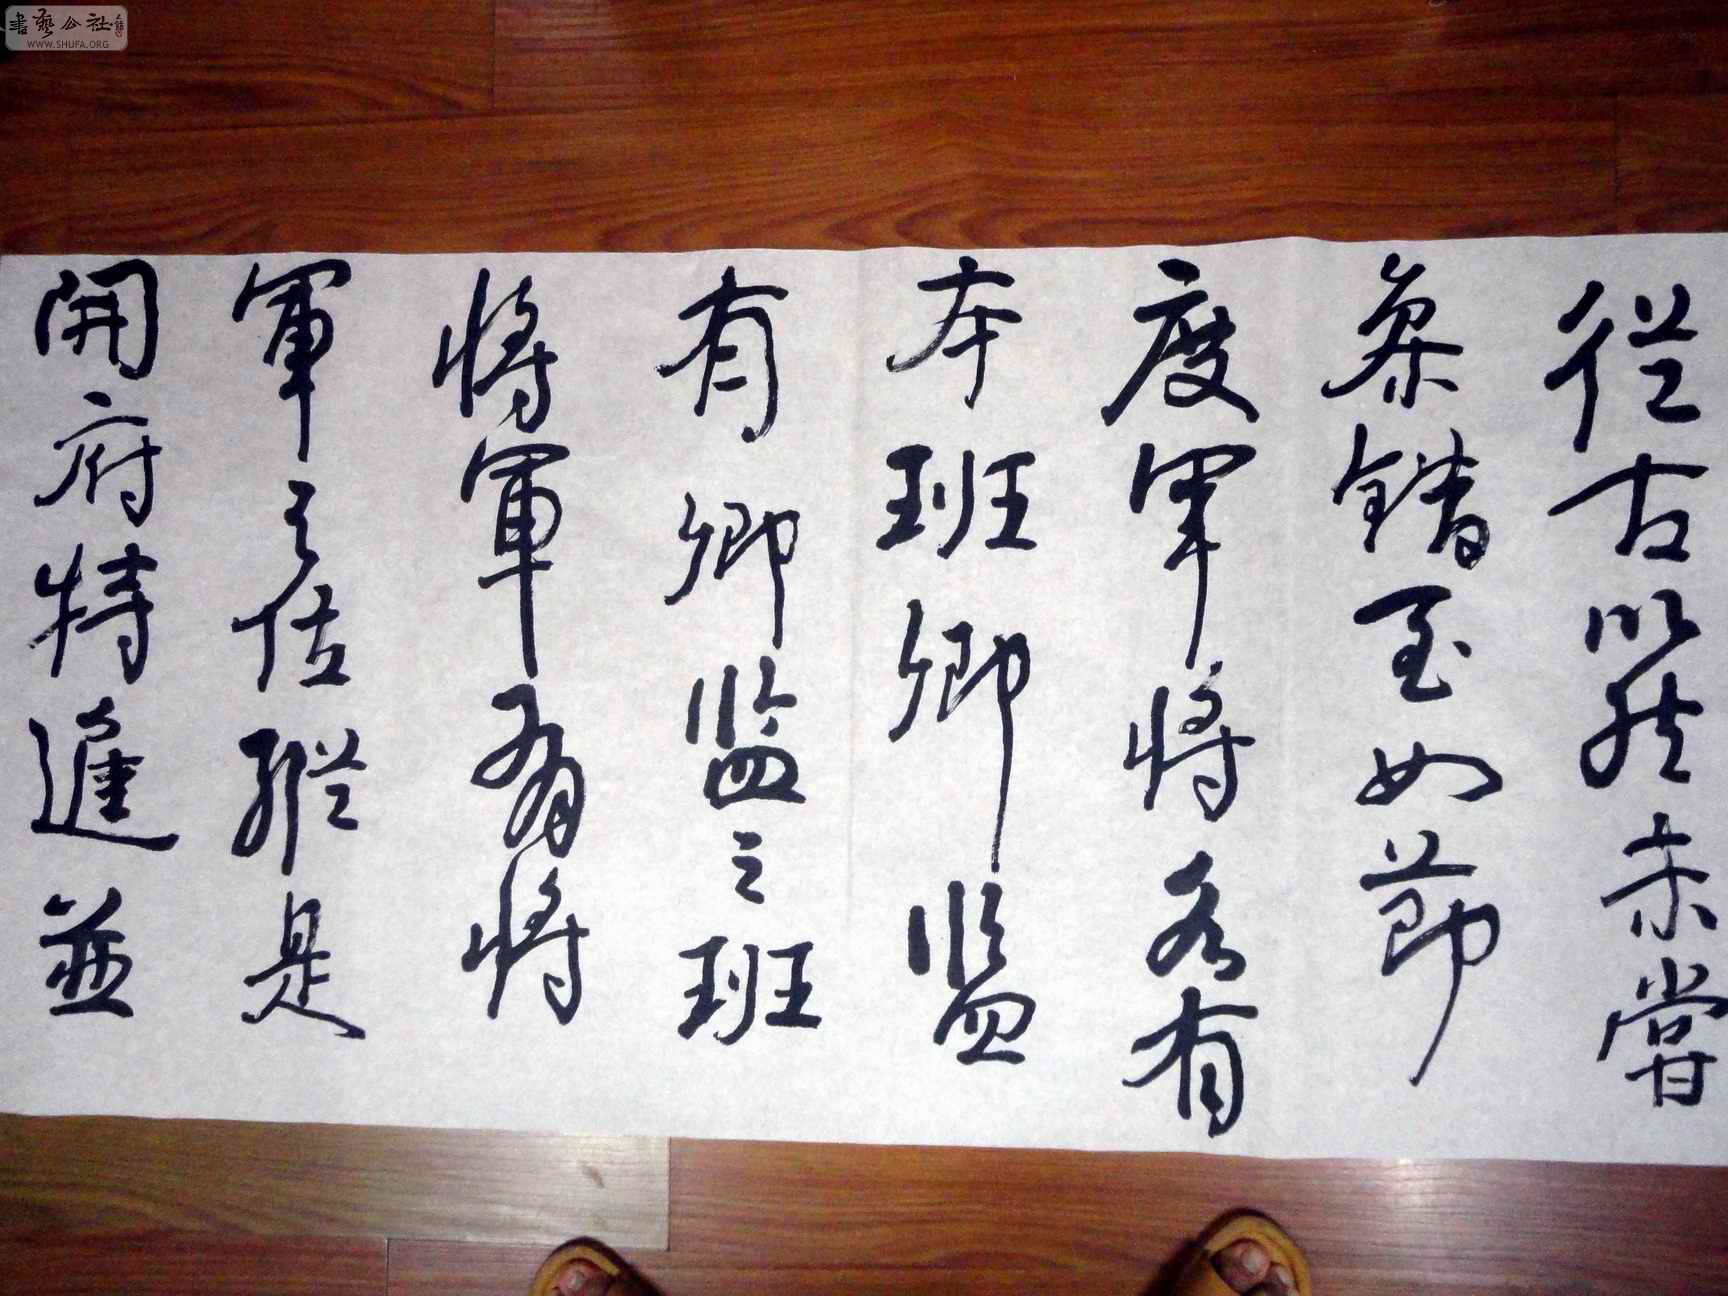 從古以然未嘗
參錯至如節
度軍將各有
本班卿監
有卿監之班
將軍有將
軍之位縱是
開府特進並
書藝公社
WWW.SHUFA.ORG